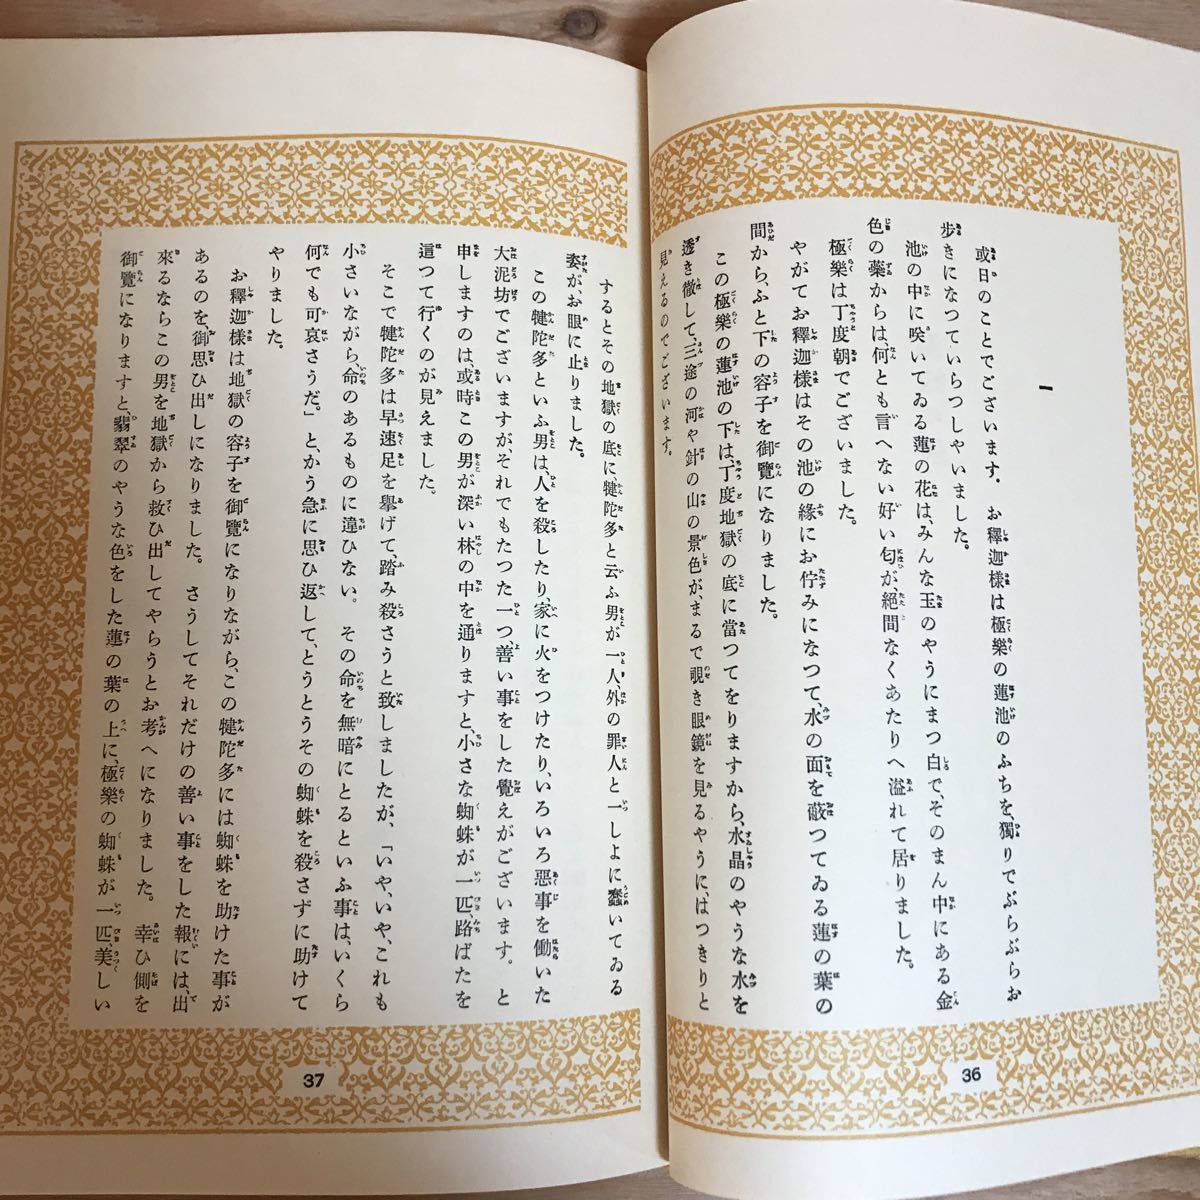 一
或日のことでございます。 お釋迦樣は極樂の蓮池のふちを、獨りでぶらぶらお
歩きになつていらつしやいました。
池の中に咲いてゐる蓮の花は、みんな玉のやうにまつ白で、そのまん中にある金
色の蘂からは、何とも言へない好い匂が絕間なくあたりへ溢れて居りました。
極樂は丁度朝でございました。
やがてお釋迦樣はその池の緣にお佇みになつて、水の面を蔽つてゐる蓮の葉の
間から、ふと下の容子を御覽になりました。
この極樂の蓮池の下は、丁度地獄の底に當つてをりますから、水晶のやうな水を
透き徹して、三途の河や針の山の景色が、まるで覗き眼鏡を見るやうに、はつきりと
見えるのでございます。
36
するとその地獄の底に犍陀多と云ふ男が一人、外の罪人と一しよに蠢いてゐる
姿が、お眼に止りました。
この犍陀多といふ男は、人を殺したり、家に火をつけたり、いろいろ惡事を働いた
大泥坊でございますが、それでもたつた一つ、善い事をした覺えがございます。 と
申しますのは、或時この男が深い林の中を通りますと、小さな蜘蛛が一匹、路ばたを
這つて行くのが見えました。
そこで犍陀多は早速足を擧げて、踏み殺さうと致しましたが、「いや、いや、これも
小さいながら、命のあるものに違ひない。 その命を無暗にとるといふ事は、いくら
何でも可哀さうだ。」と、かう急に思ひ返して、とうとうその蜘蛛を殺さずに助けて
やりました。
お釋迦樣は地獄の容子を御覽になりながら、この犍陀多には蜘蛛を助けた事が
あるのを、御思ひ出しになりました。 さうしてそれだけの善い事をした報には、出
來るならこの男を地獄から救ひ出してやらうとお考へになりました。 幸ひ側を
御覽になりますと、翡翠のやうな色をした蓮の葉の上に、極樂の蜘蛛が一匹、美しい
37